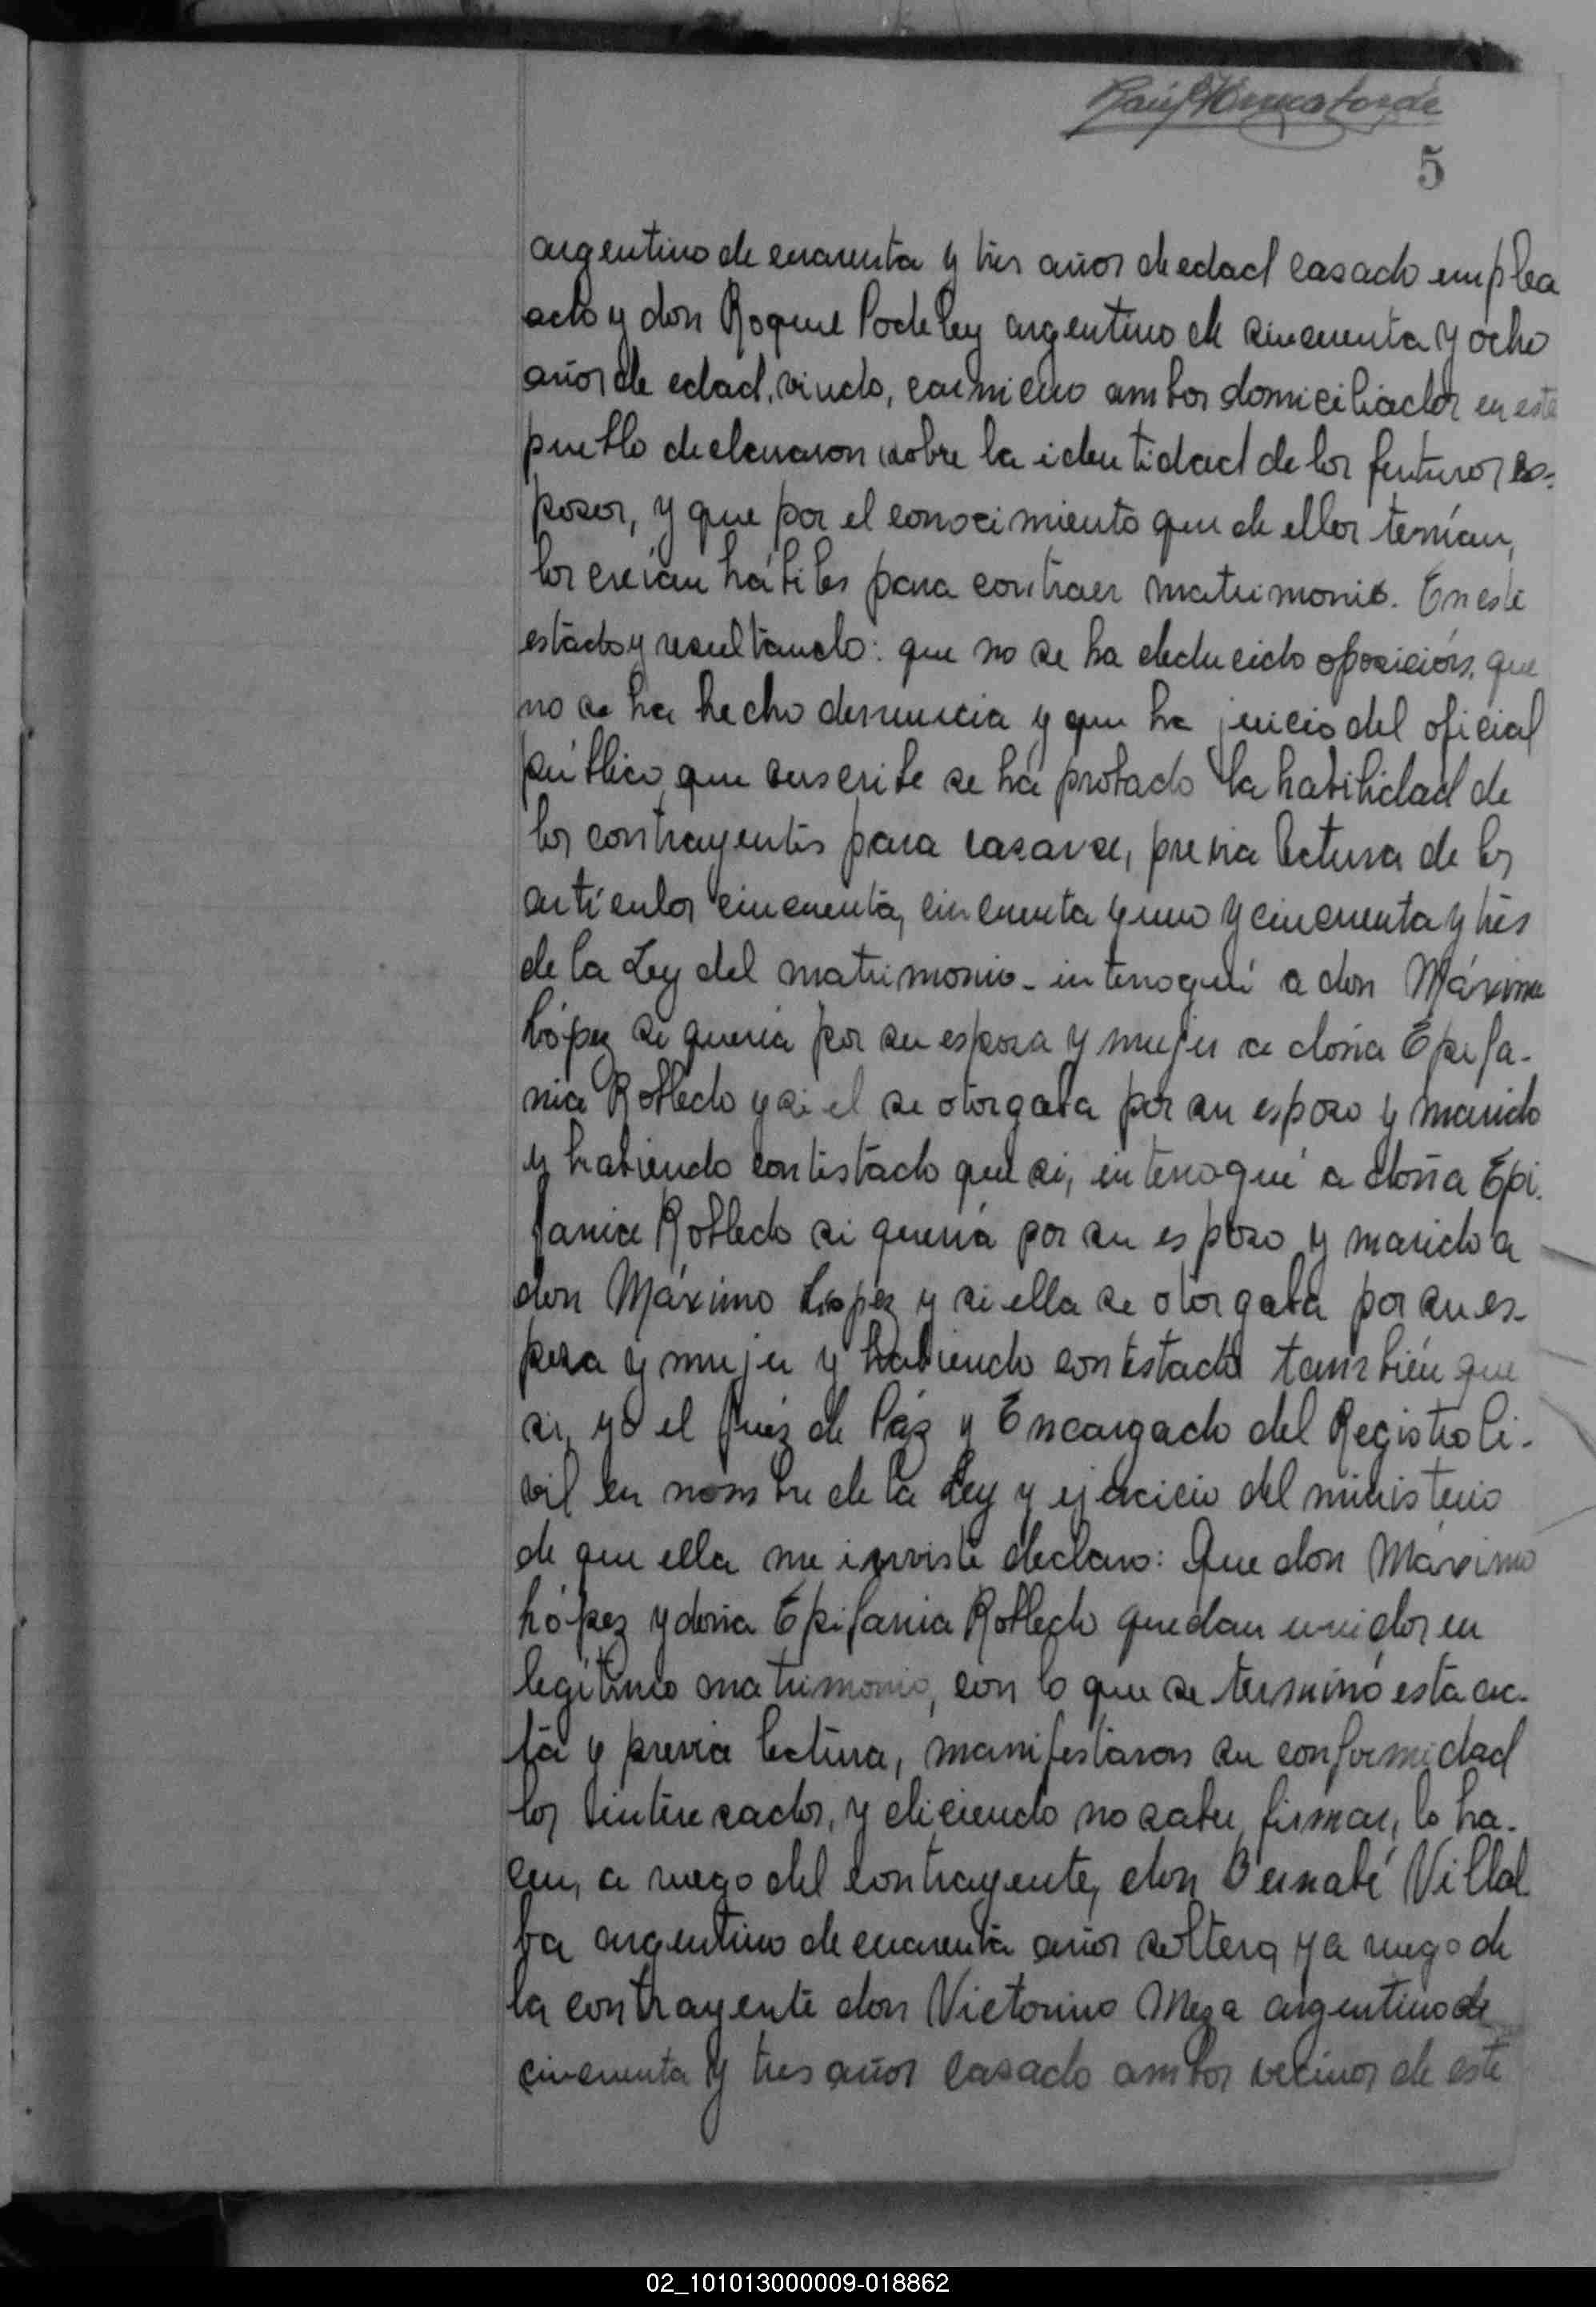 5
argentino de cuarenta y tres años de edad casado emplea
ado y don Roque Podeley argentino de cincuenta y ocho
años de edad, viudo, carnicero ambos domiciliados en este
pueblo declararon sobre la identidad de los futuros es-
posos, y que por el conocimiento que de ellos tenían,
los creían hábiles para contraer matrimonio. En este
estado y resultando: que no se ha deducido oposición, que
no se ha hecho denuncia y que ha juicio del oficial
público que suscribe se há probado la habilidad de
los contrayentes para casarse, previa lectura de los
artículos cincuenta, cincuenta y uno y cincuenta y tres
de la Ley del matrimonio - interrogué a don Máximo
López si quería por su esposa y mujer a doña Epifa-
nia Robledo y si el se otorgaba por su esposo y marido
y habiendo contestado que si, interrogué a doña Epi-
fania Robledo si quería por su esposo y marido a
don Máximo López y si ella se otorgaba por su es-
posa y mujer y habiendo contestado también que
si, yo el Juéz de Páz y Encargado del Registro Ci-
vil en nombre de la Ley y ejercicio del ministerio
de que ella me inviste declaro: Que don Máximo
López y doña Epifania Robledo quedan unidos en
legítimo matrimonio, con lo que se terminó esta ac-
ta y previa lectura, manifestaron su conformidad
los interesados, y diciendo no saber firmar, lo ha-
cen, a ruego del contrayente, don Bernabé Villal
ba argentino de cuarenta años soltero, y a ruego de
la contrayente don Victorino Meza argentino de
cincuenta y tres años casado ambos vecinos de este
02_101013000009-018862